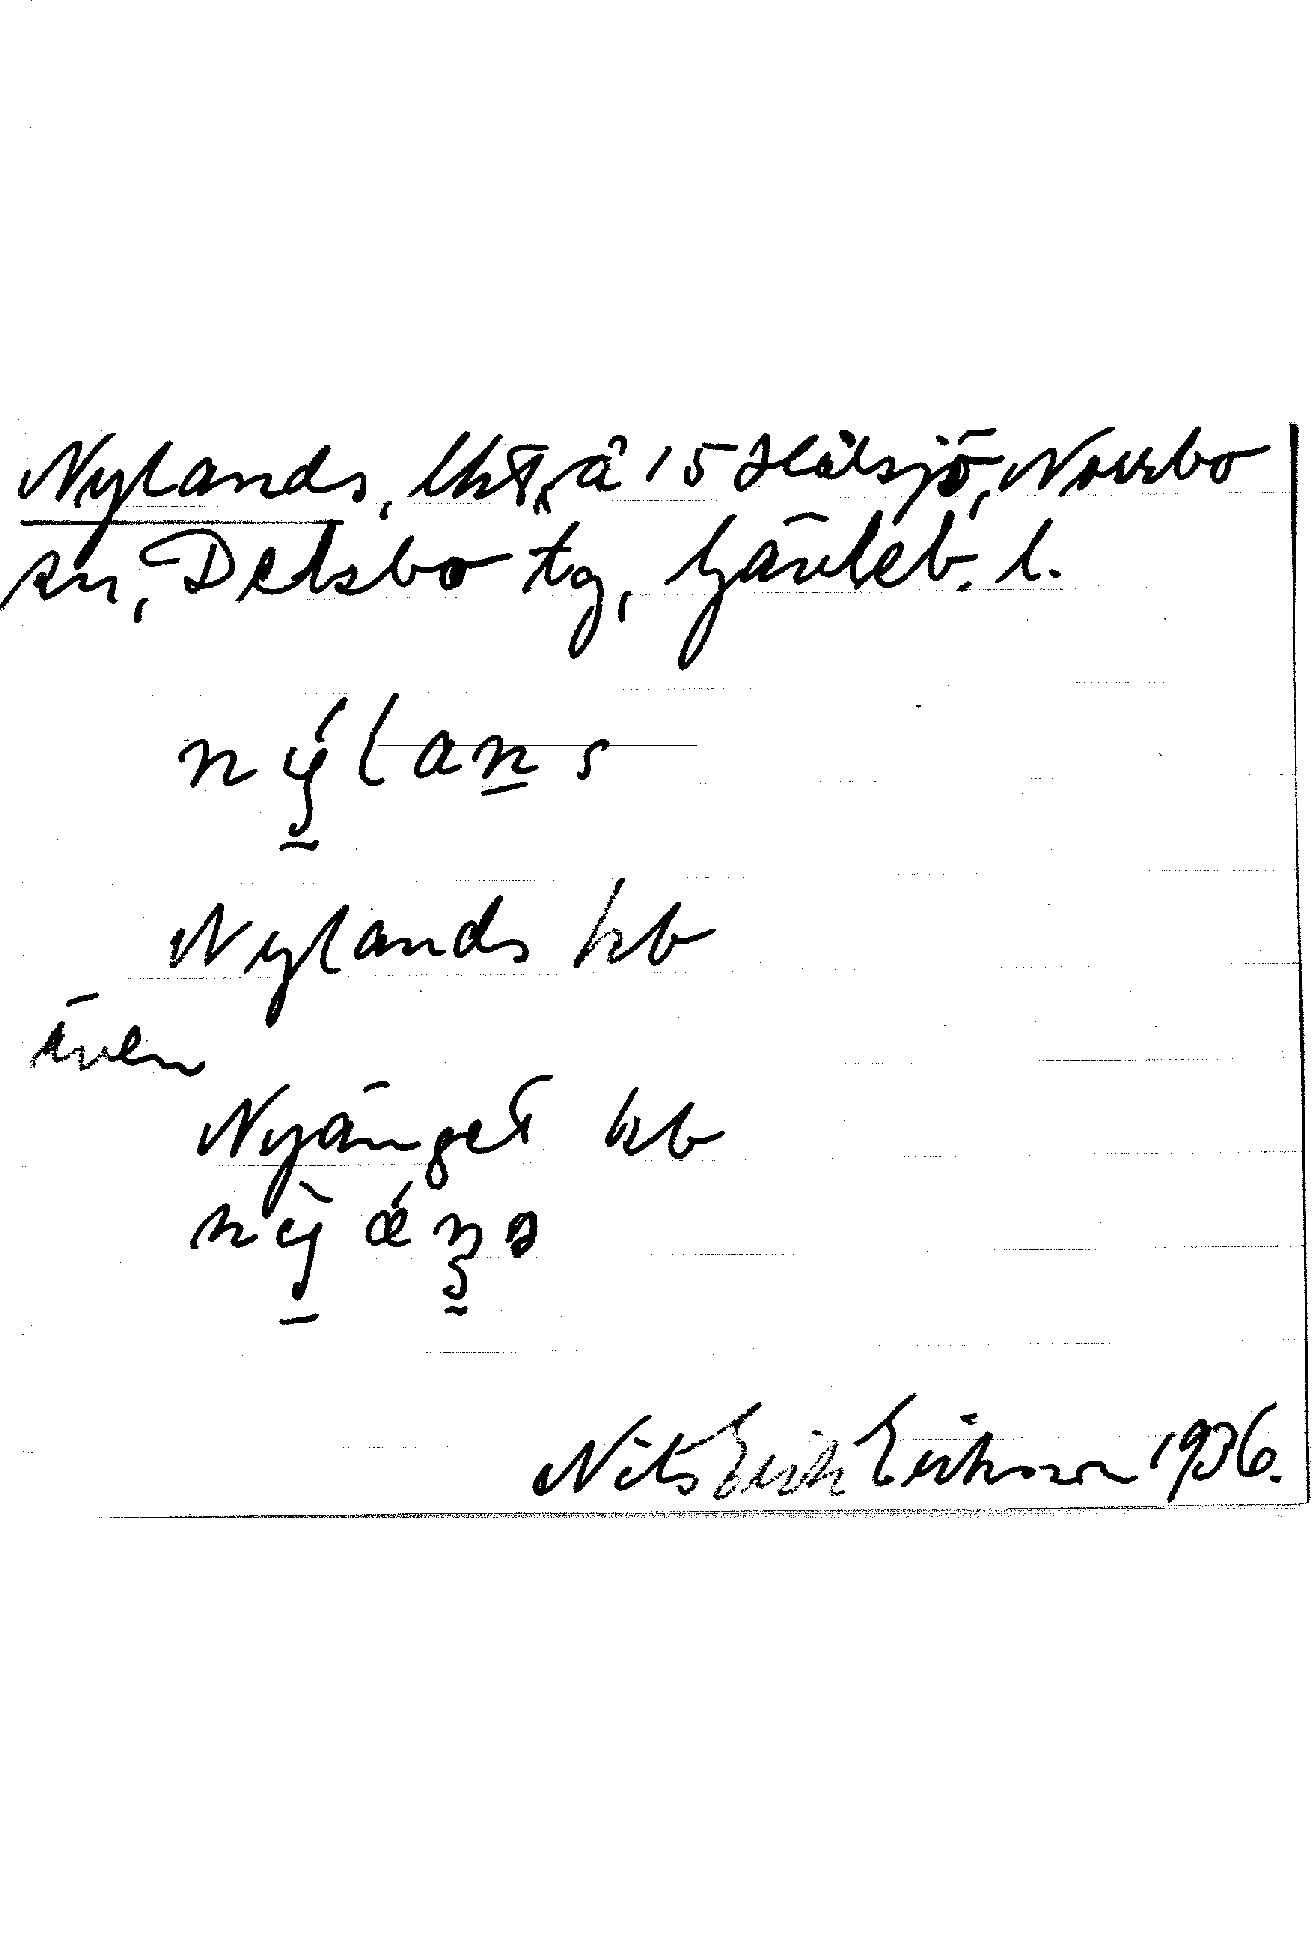 Nylands, lht, å 15 Hålsjö, Norrbo
sn, Delsbo tg, Gävleb. l.
nýlans
Nylands kb
även
Nyänget kb
Nils Erik Eriksson 1936.